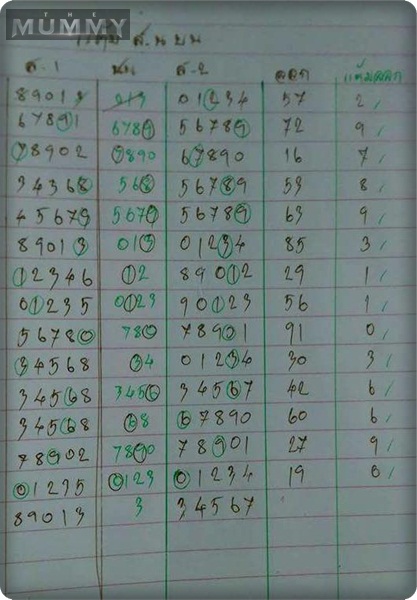 THE
MUMMY
ส.1 บน ส.2 ออก แต้มออก
89013 013 01234 57 2
67891 6789 56789 72 9
78902 7890 67890 16 7
34368 568 56789 53 8
45679 5679 56789 63 9
89013 013 01234 85 3
12346 12 89012 29 1
01235 0123 90123 56 1
56780 780 78901 91 0
34568 34 01234 30 3
34568 3456 34567 42 6
34568 68 67890 60 6
78902 7890 78901 27 9
01235 0123 01234 19 0
89013 3 34567